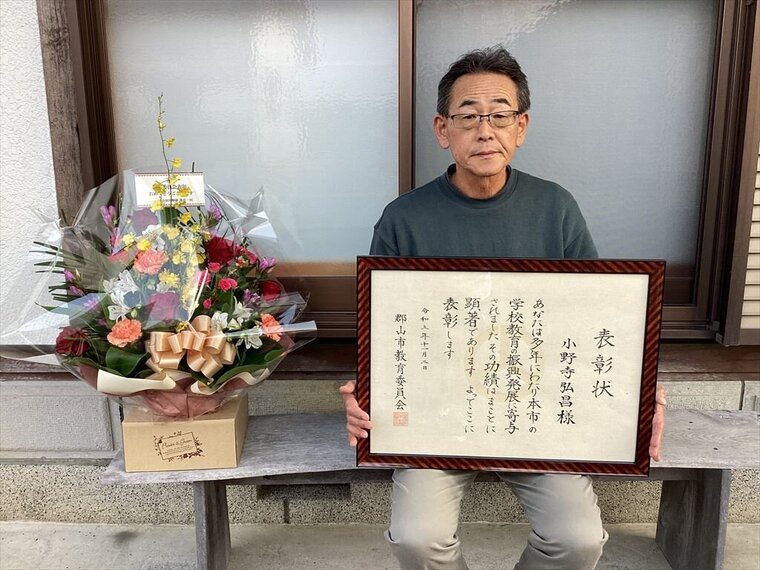 表彰状
小野寺弘昌様
あなたは多年にわたり本市の
学校教育の振興発展に寄与
されました その功績はまことに
顕著であります よってここに
表彰します
令和五年十一月三日
郡山市教育委員会